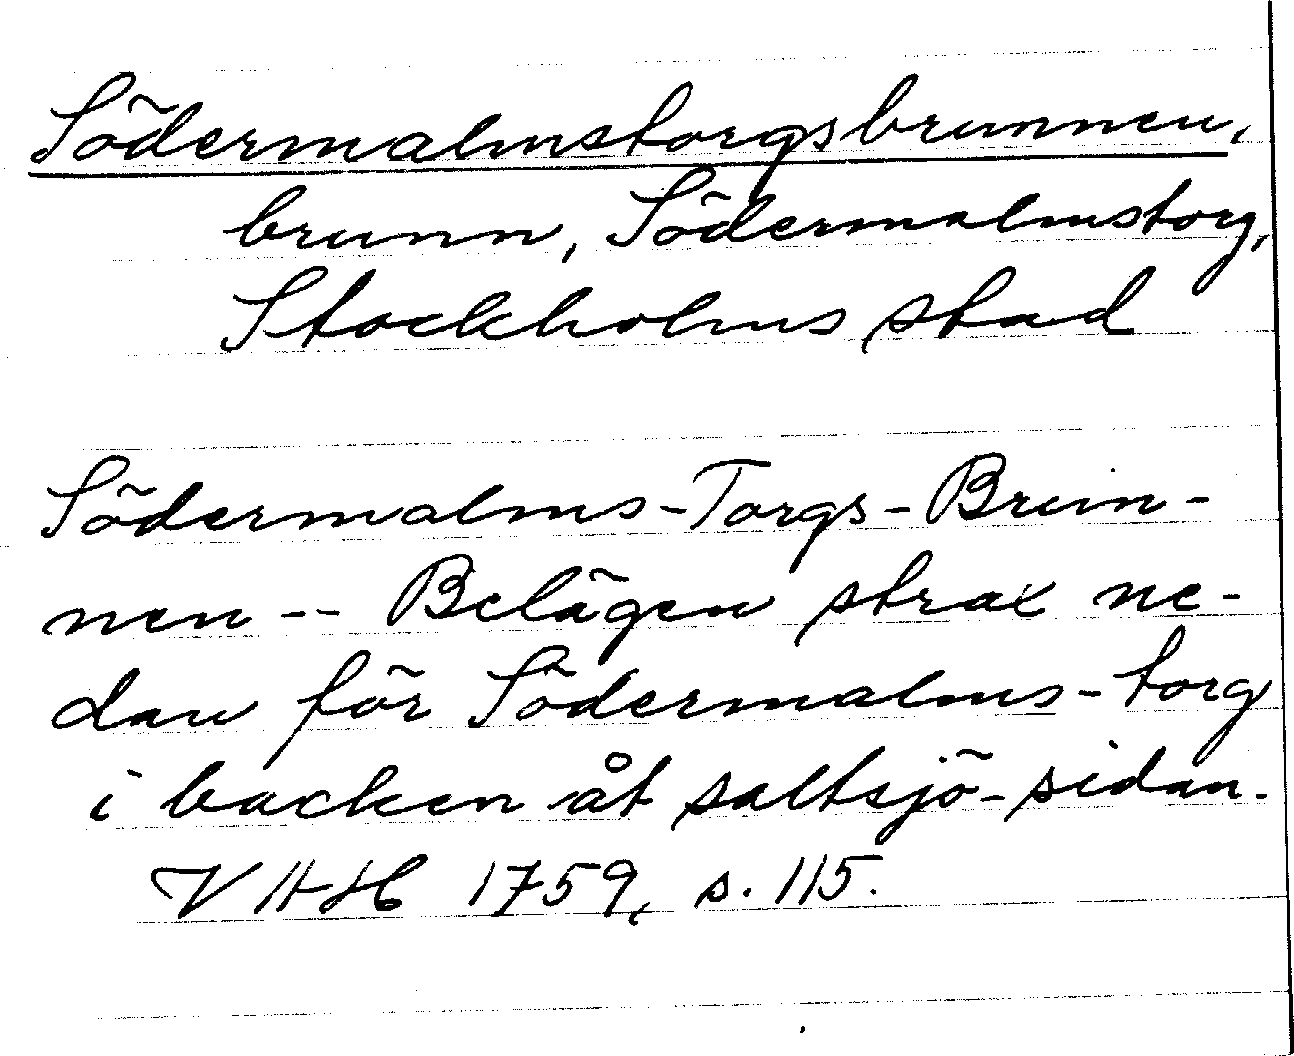 Södermalmstorgsbrunnen,
brunn, Södermalmstorg,
Stockholms stad
Södermalms-Torgs-Brun-
nen -- Belägen strax ne-
dan för Södermalms-torg
i backen åt saltsjö-sidan.
VHH 1759, s. 115.